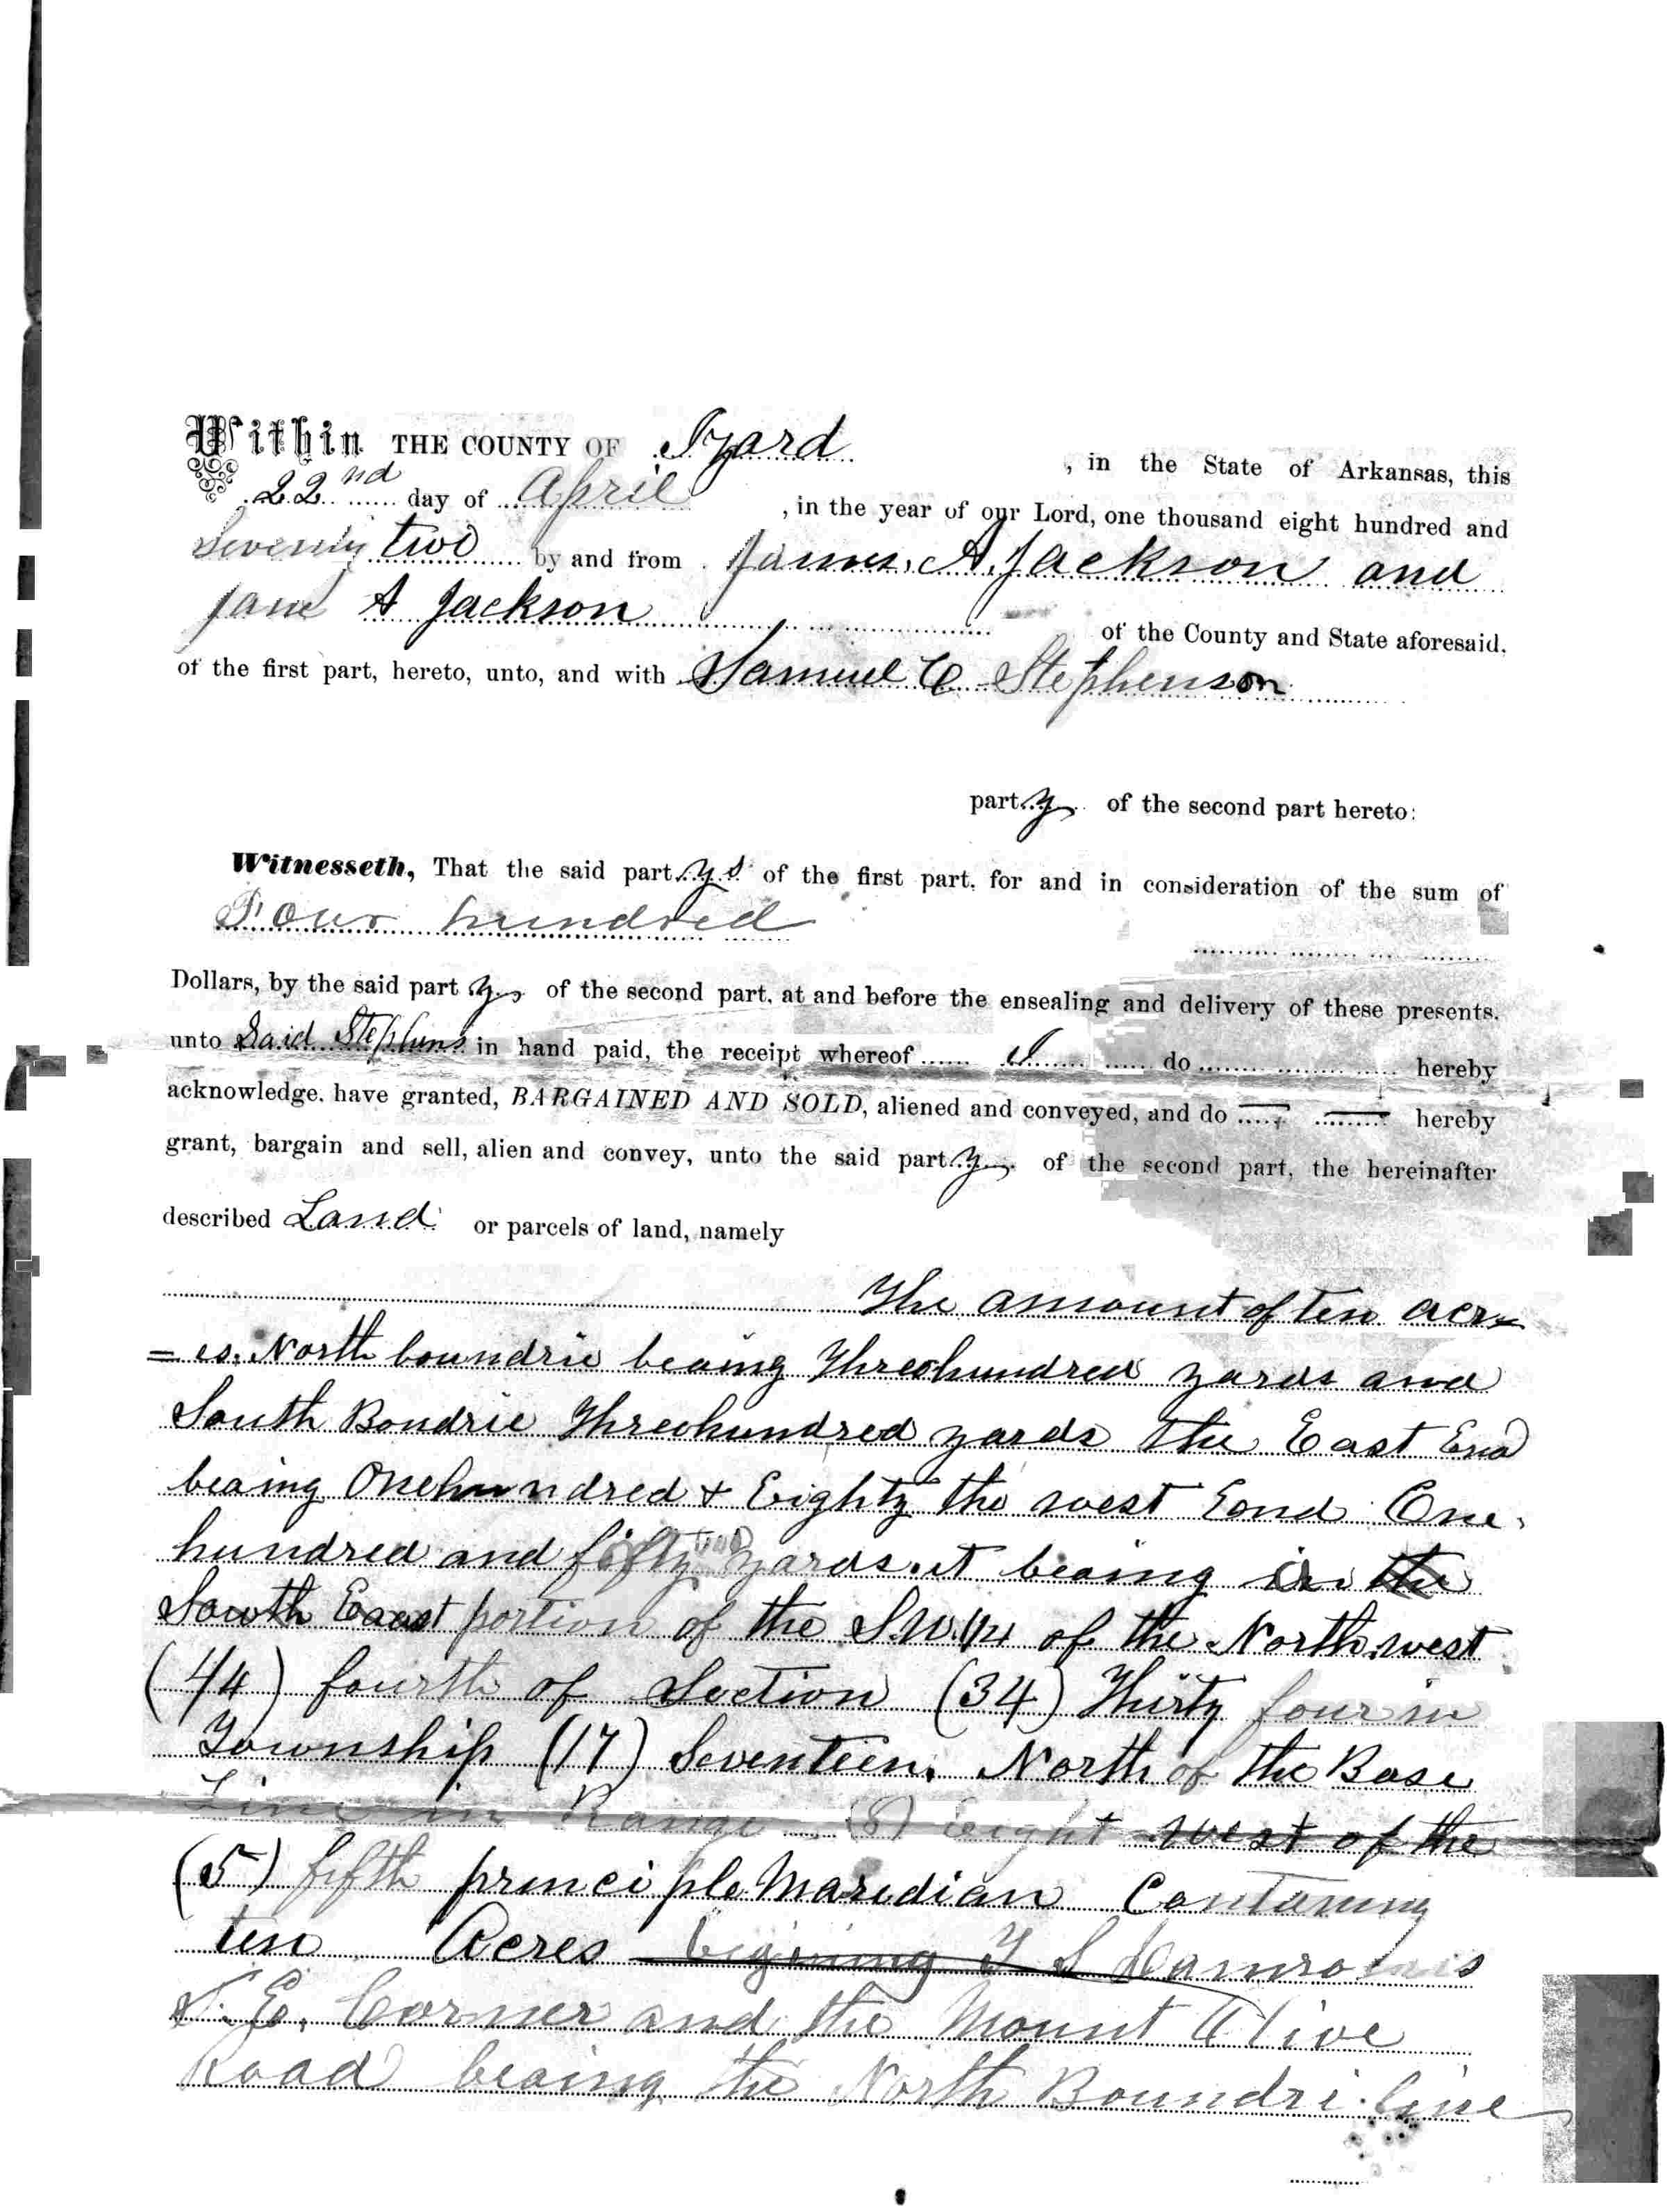 Within THE COUNTY OF Izard , in the State of Arkansas, this
22nd day of April , in the year of our Lord, one thousand eight hundred and
Seventy two by and from James. A. Jackson and
Jane A Jackson of the County and State aforesaid,
of the first part, hereto, unto, and with Samuel C Stephenson
party of the second part hereto:
Witnesseth, That the said partys of the first part, for and in consideration of the sum of
Four hundred
Dollars, by the said party of the second part, at and before the ensealing and delivery of these presents,
unto Said Stephens in hand paid, the receipt whereof I do hereby
acknowledge, have granted, BARGAINED AND SOLD, aliened and conveyed, and do hereby
grant, bargain and sell, alien and convey, unto the said party of the second part, the hereinafter
described Land or parcels of land, namely
The amount of ten acr=
=es. North boundrie beaing Threehundred yards and
South Bondrie Threehundred yards the East End
beaing Onehundred + Eighty the west Eond One
hundred and fifty two yards. it beaing in the
South East portion of the S.W. 1/4 of the North west
(4/4) fourth of Section (34) Thirty four in
Township (17) Seventeen. North of the Base
Line in Range (8) Eight west of the
(5) fifth principle Maredian Containing
ten Acres begining S
S. E. Corner and the Mount Olive
Road beaing the North Boundri line